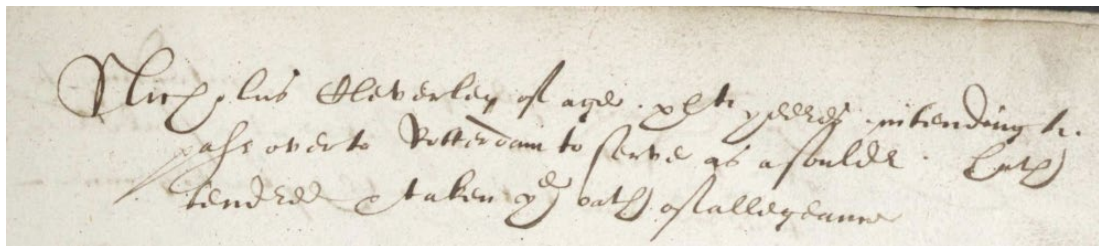 Nicholus Cleverley of age xlti yeeres intending to
passe over to Rotterdam to serve as a souldr hath
tendred & taken ye oath of allegeance